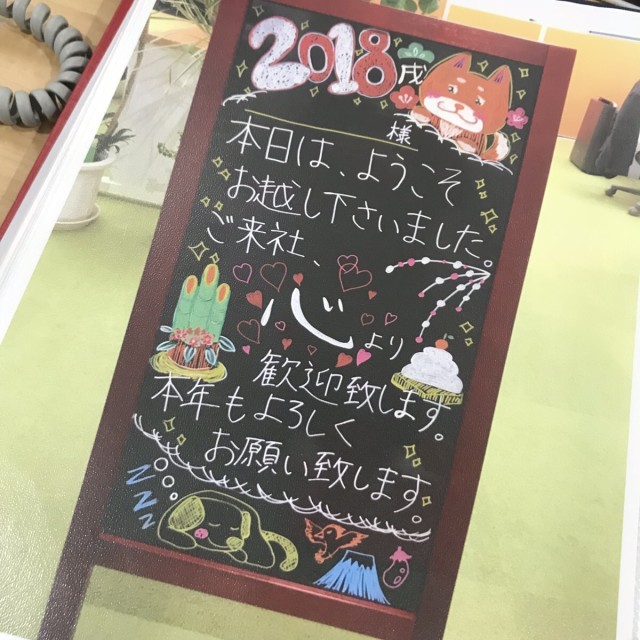 2018
戌
様
本日は、ようこそ
お越し下さいました。
ご来社、
心より
歓迎致します。
本年もよろしく
お願い致します。
ZZZ